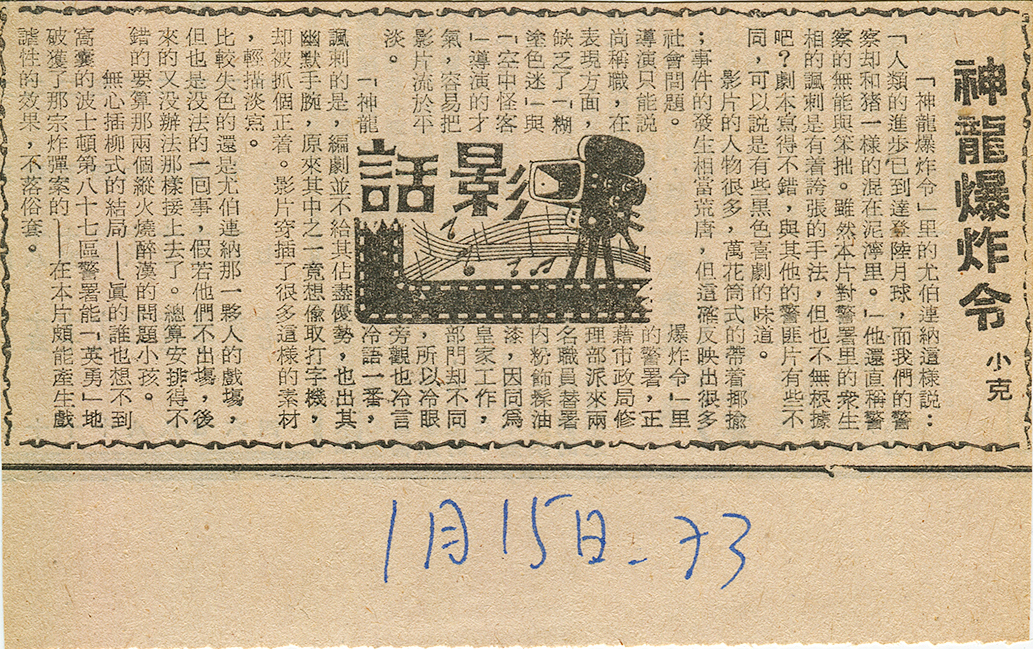 神龍爆炸令
小克
「神龍爆炸令」里的尤伯連納這樣說：
「人類的進步已到達登陸月球，而我們的警
察却和猪一樣的混在泥濘里。」他還直稱警
察的無能與笨拙。雖然本片對警署里的衆生
相的諷刺是有着誇張的手法，但也不無根據
吧？劇本寫得不錯，與其他的警匪片有些不
同，可以說是有些黑色喜劇的味道。
影片的人物很多，萬花筒式的帶着揶揄
；事件的發生相當荒唐，但這確反映出很多
社會問題。
導演只能說
尚稱職，在
表現方面，
缺乏了「糊
塗色迷」與
「空中怪客
」導演的才
氣，容易把
影片流於平
淡。
「神龍
影話
爆炸令」里
的警署，正
藉市政局修
理部派來兩
名職員替署
內粉飾髹油
漆，因同爲
皇家工作，
部門却不同
，所以冷眼
旁觀也冷言
冷語一番，
諷刺的是，編劇並不給其佔盡優勢，也出其
幽默手腕，原來其中之一竟想偷取打字機，
却被抓個正着。影片穿插了很多這樣的素材
，輕描淡寫。
比較失色的還是尤伯連納那一夥人的戲塲，
但也是沒法的一回事，假若他們不出塲，後
來的又沒辦法那樣接上去了。總算安排得不
錯的要算那兩個縱火燒醉漢的問題小孩。
無心插柳式的結局——眞的誰也想不到
窩囊的波士頓第八十七區警署能「英勇」地
破獲了那宗炸彈案的——在本片頗能產生戲
謔性的效果，不落俗套。
1月15日-73